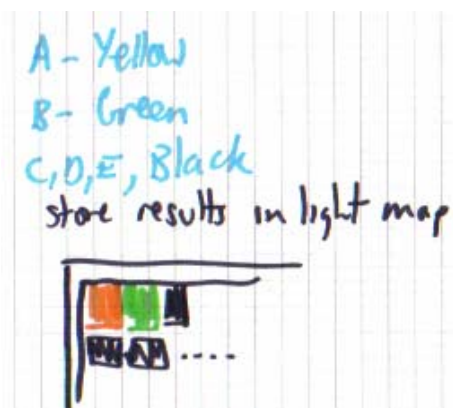 A - Yellow
B - Green
C, D, E, Black
store results in light map